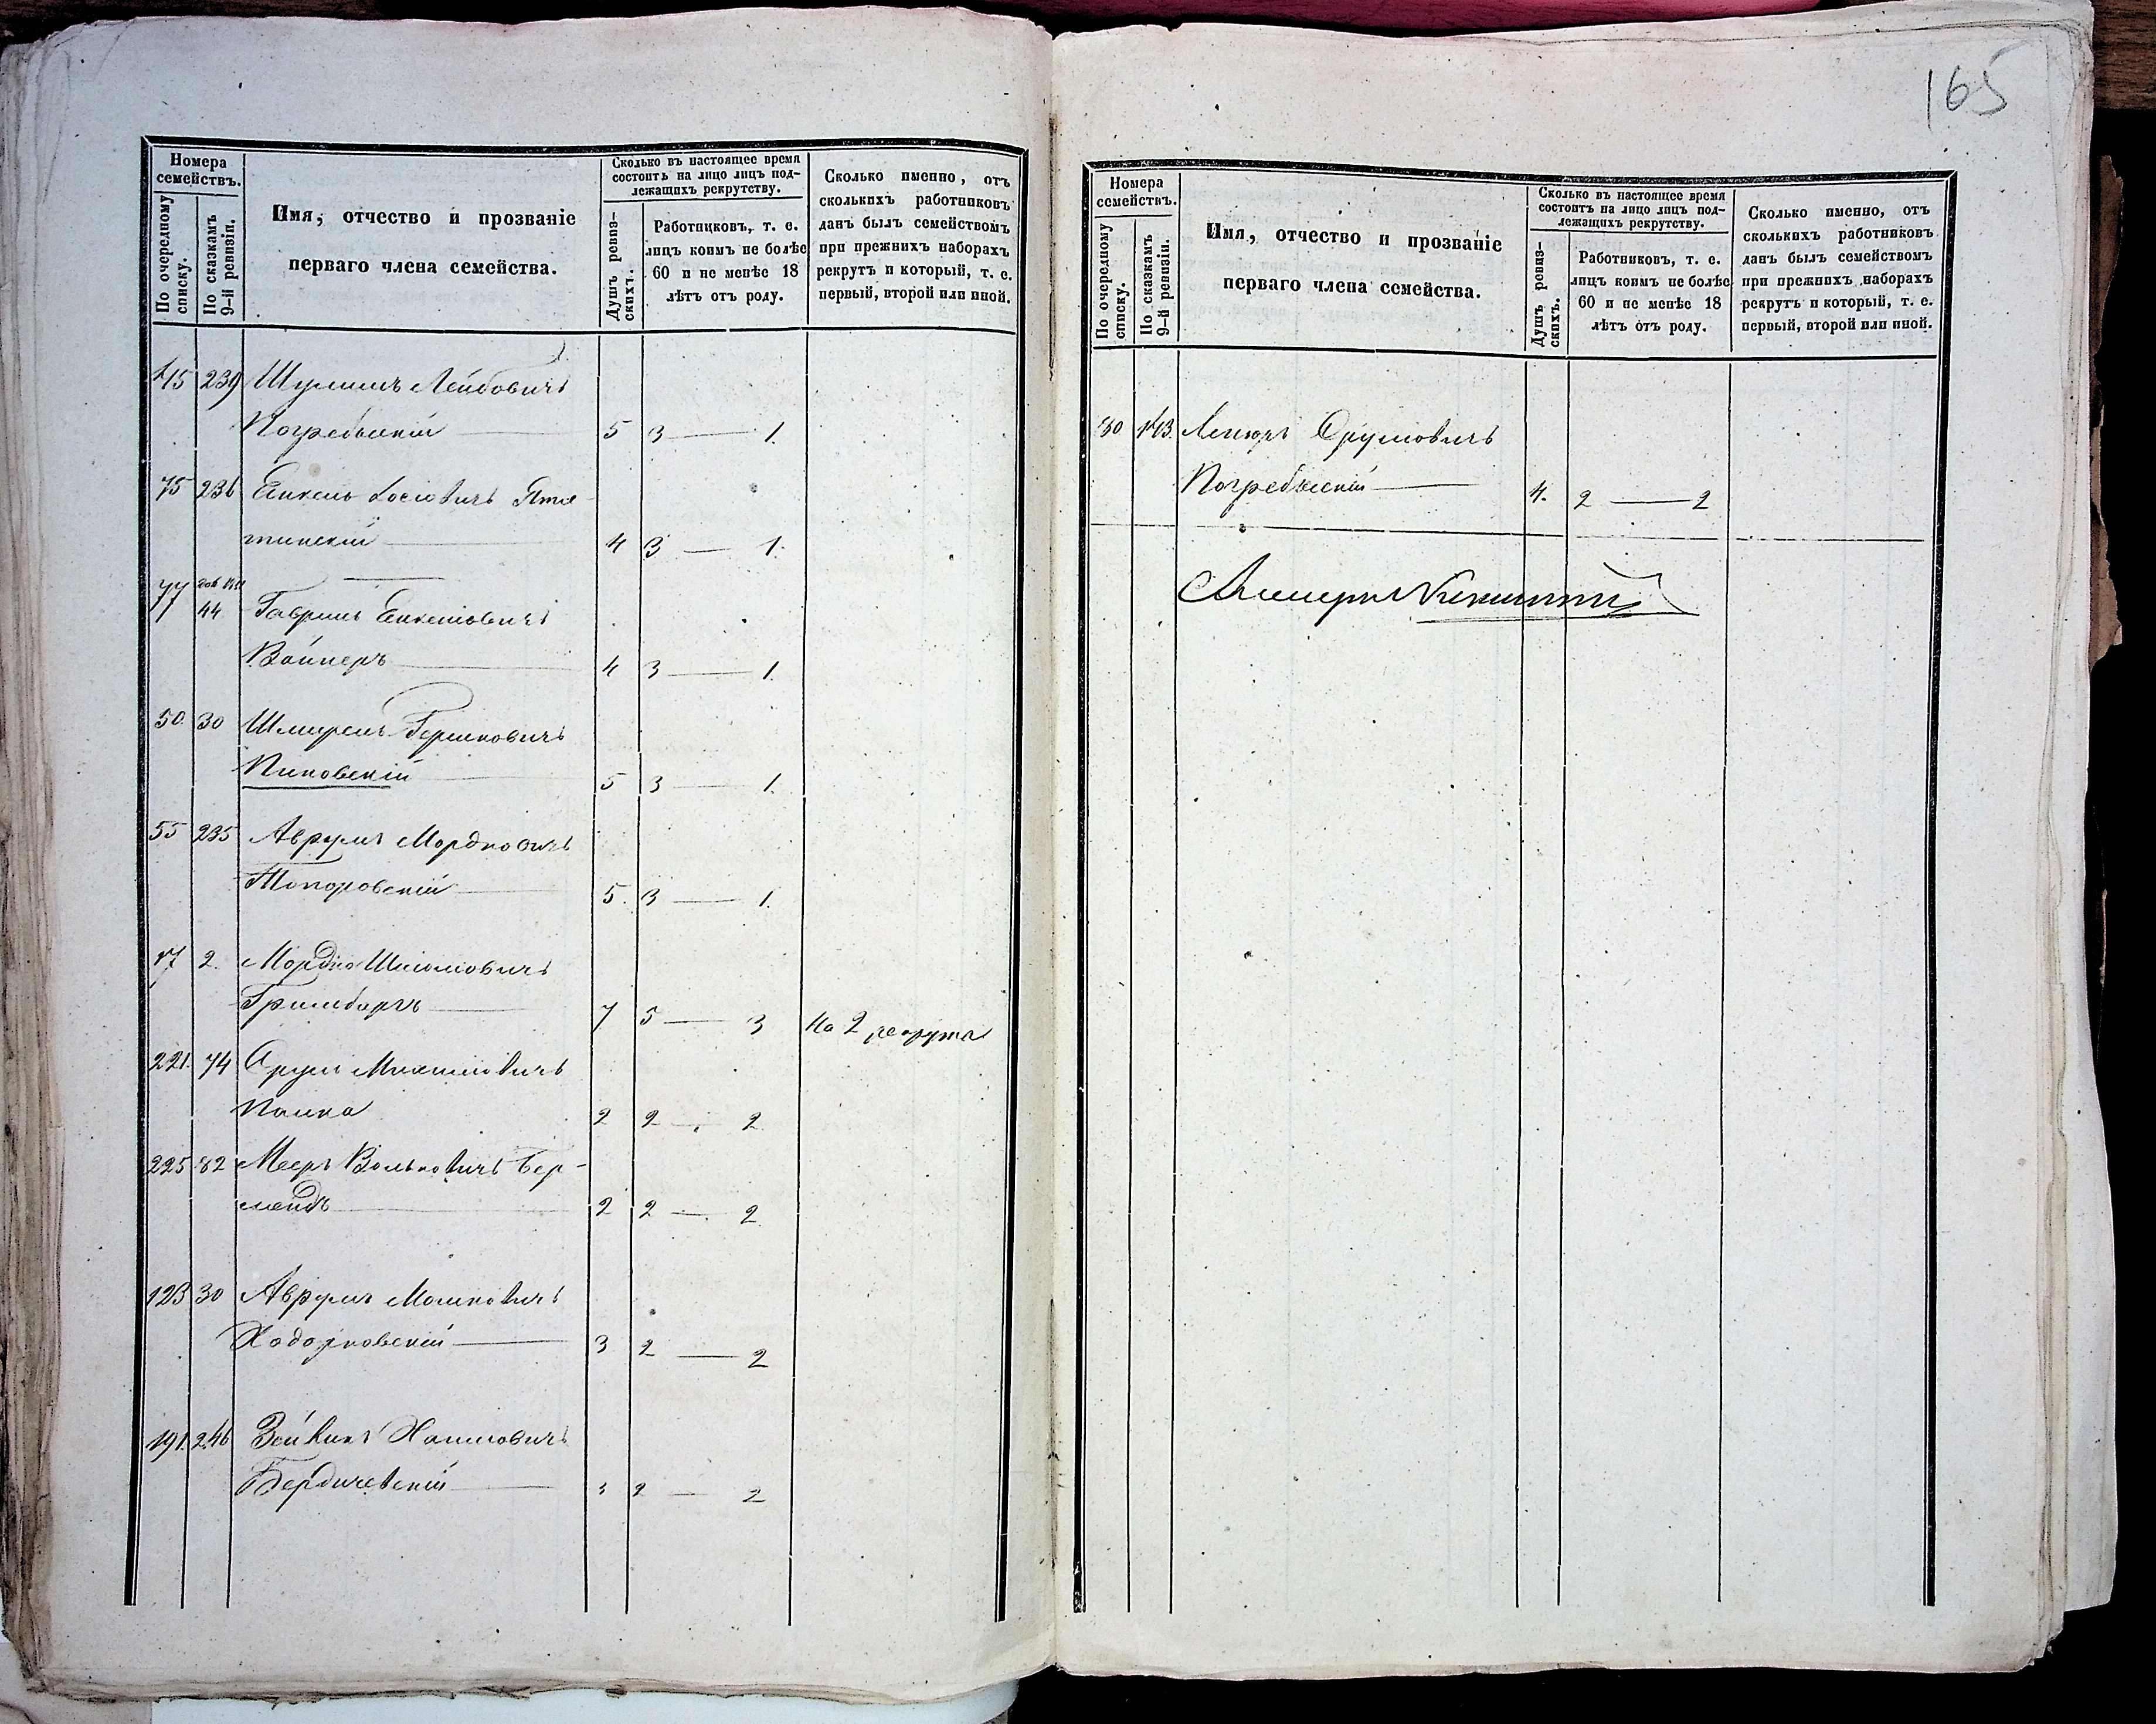 165
Номера
семействъ.
По очередному
списку.
По сказкамъ
9-й ревизіи.
Имя, отчество и прозваніе
перваго члена семейства.
Сколько въ настоящее время
состоитъ на лицо лицъ под-
лежащихъ рекрутству.
Душъ ревиз-
скихъ.
Работниковъ, т. е.
лицъ коимъ не болѣе
60 и не менѣе 18
лѣтъ отъ роду.
Сколько именно, отъ
сколькихъ работниковъ
данъ былъ семействомъ
при прежнихъ наборахъ
рекрутъ и который, т. е.
первый, второй или иной.
239 Шулимъ Лейбовичъ
Погребыскій 5 3 — 1.
75 236 Янкель Іосіовичъ Пят-
4 3 — 1.
77 44
Вайнеръ 4 3 — 1.
50. 30 Гершковичъ
Пиковскій 5 3 — 1.
55 235 Аврумъ Мордковичъ
Топоровскій 5. 3 — 1.
17 2. Мордко Шломовичъ
7 5 — 3 На 2 рекрута
221. 74 Срулъ
2 2 — 2
225 82 Мееръ Вольковичъ Бер-
2 2 — 2
123 30 Аврумъ Мошковичъ
Ходорковскій 3 2 — 2
191. 246 Хаимовичъ
Бердичевскій 2 — 2
Номера
семействъ.
По очередному
списку.
По сказкамъ
9-й ревизіи.
Имя, отчество и прозваніе
перваго члена семейства.
Сколько въ настоящее время
состоитъ на лицо лицъ под-
лежащихъ рекрутству.
Душъ ревиз-
скихъ.
Работниковъ, т. е.
лицъ коимъ не болѣе
60 и не менѣе 18
лѣтъ отъ роду.
Сколько именно, отъ
сколькихъ работниковъ
данъ былъ семействомъ
при прежнихъ наборахъ
рекрутъ и который, т. е.
первый, второй или иной.
Срулiовичъ
Погребыскій 4. 2 — 2